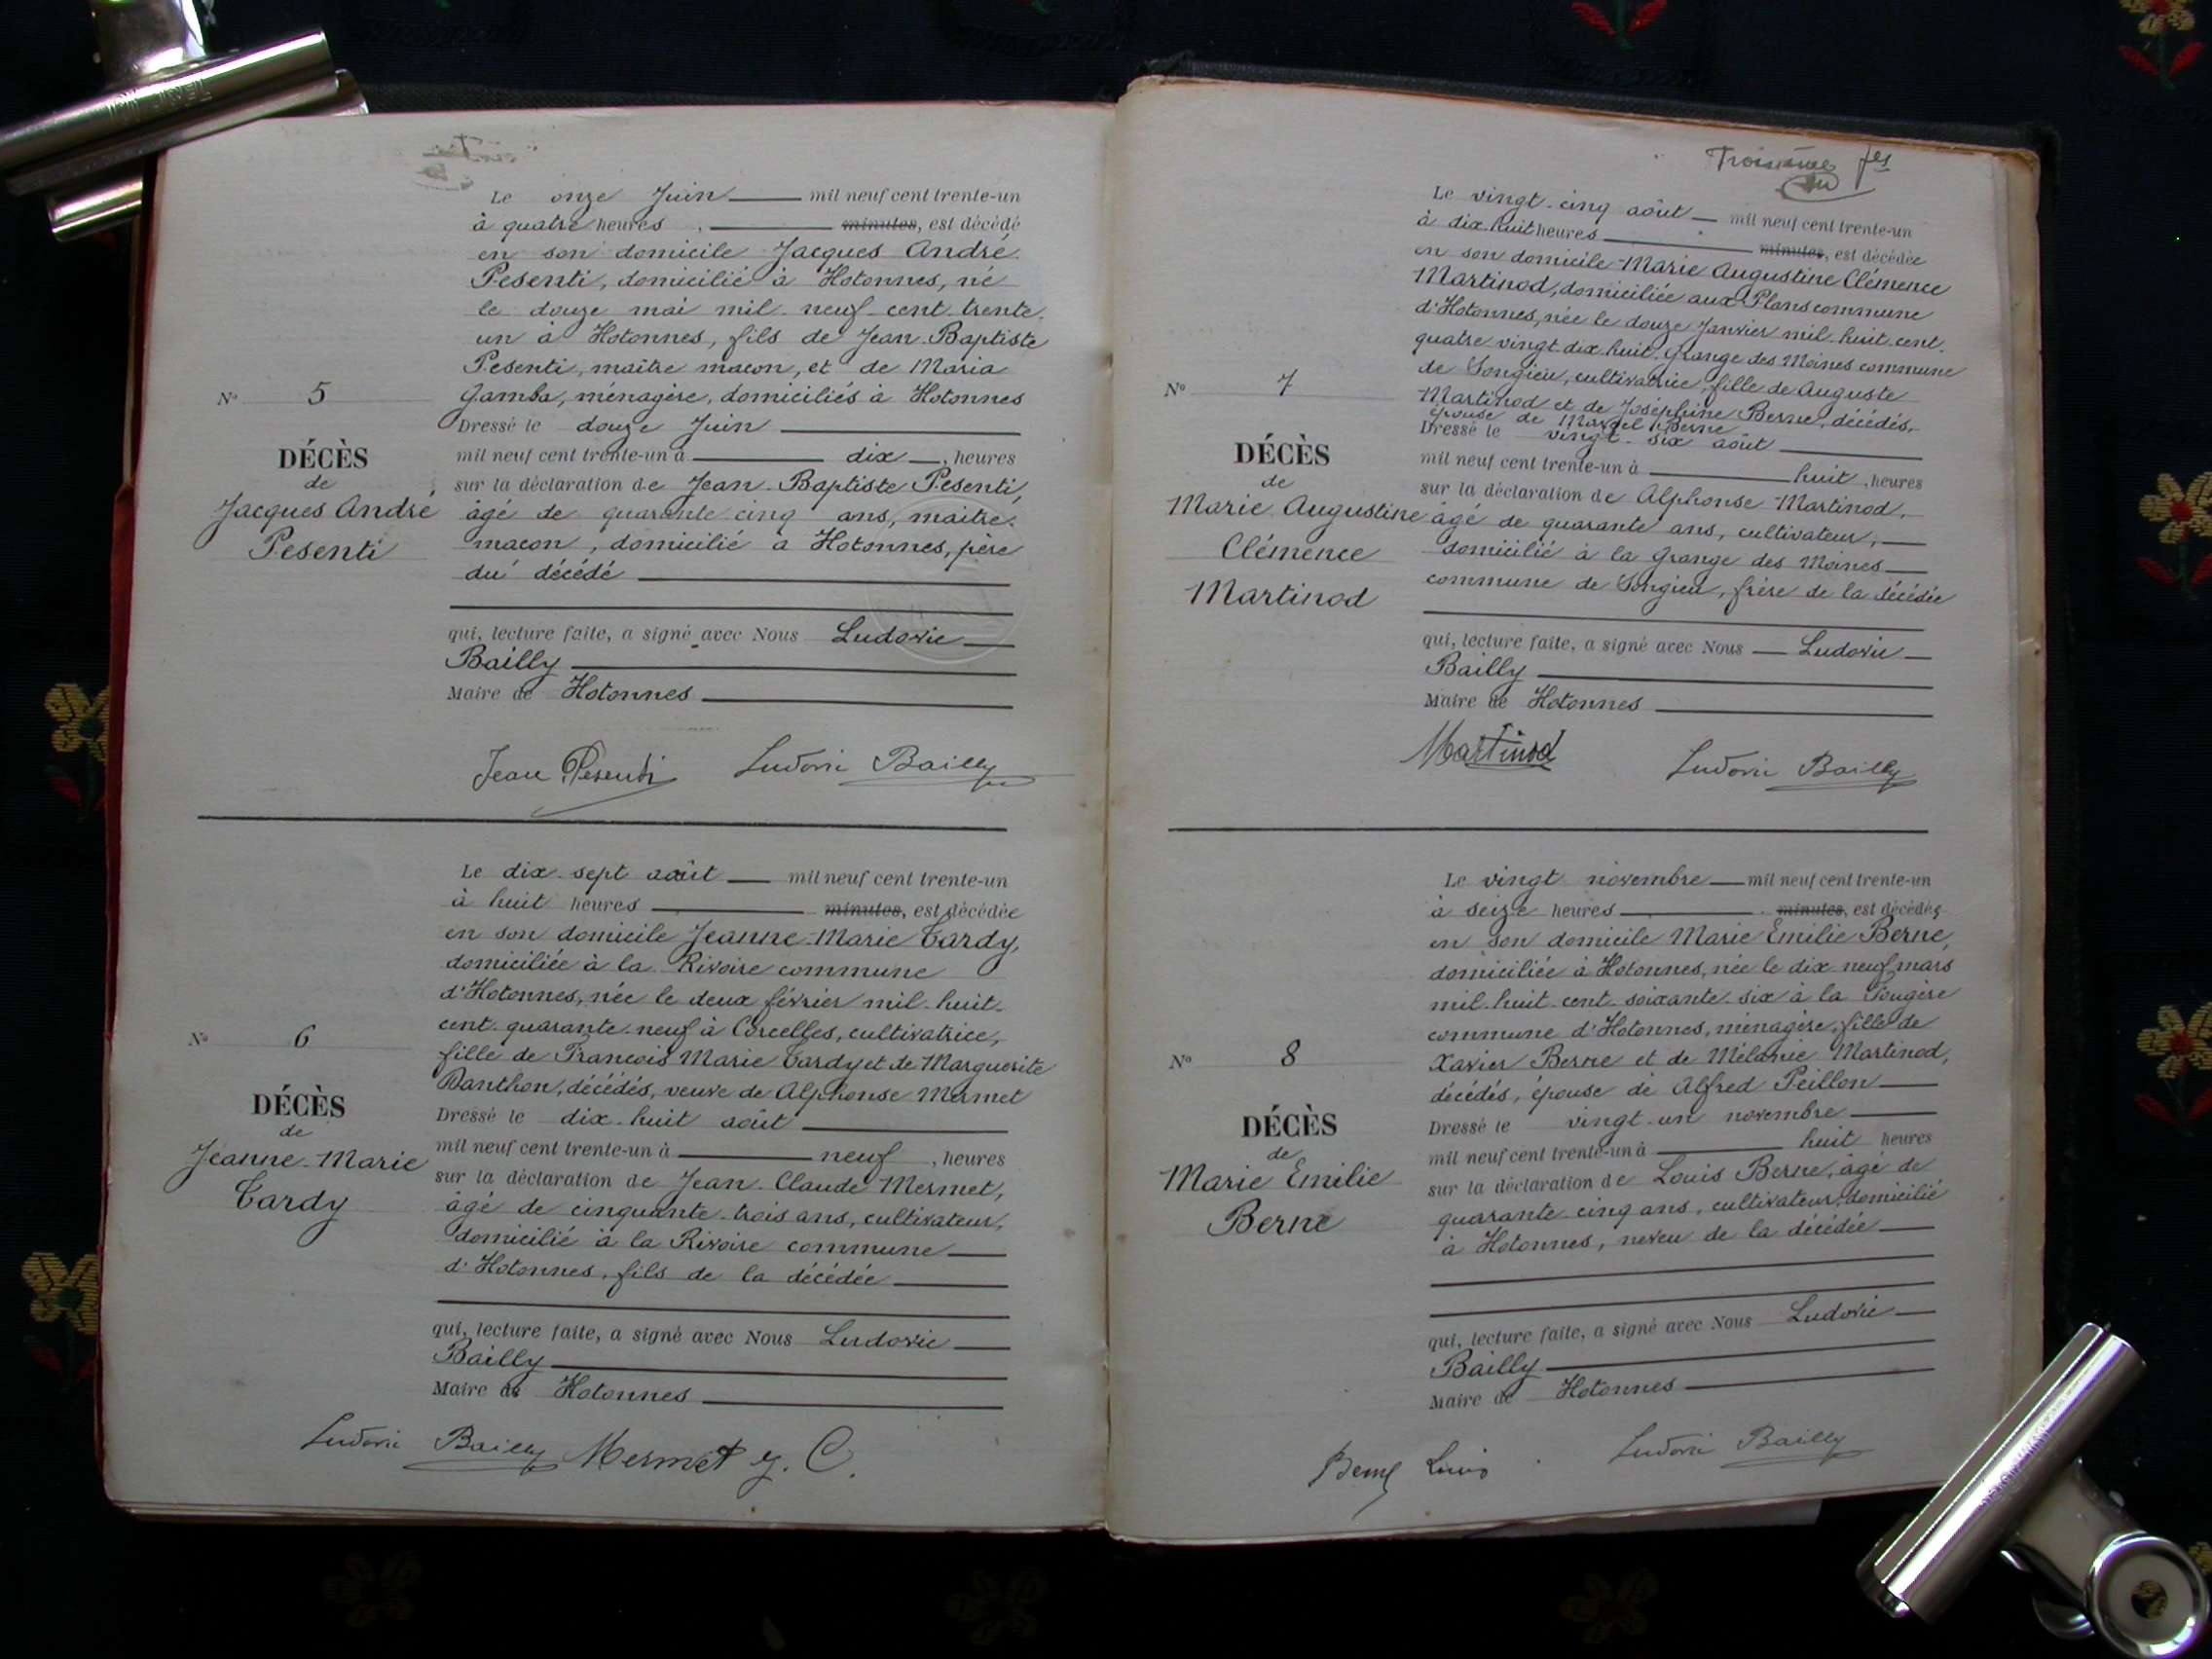 Le onze Juin mil neuf cent trente-un
à quatre heures minutes, est décédé
en son domicile Jacques André
Pesenti, domicilié à Hotonnes, né
le douze mai mil neuf cent trente
un à Hotonnes, fils de Jean-Baptiste
Pesenti, maître maçon, et de Maria
Gamba, ménagère, domiciliés à Hotonnes
Dressé le douze Juin
mil neuf cent trente-un à dix, heures
sur la déclaration de Jean-Baptiste Pesenti,
âgé de quarante cinq ans, maitre
macon, domicilié à Hotonnes, père
du décédé
qui, lecture faite, a signé avec Nous Ludovic
Bailly
Maire de Hotonnes
N° 5
DÉCÈS
de
Jacques André
Pesenti
Jean Pesenti Ludovic Bailly
Le dix-sept août mil neuf cent trente-un
à huit heures minutes, est décédée
en son domicile Jeanne-Marie Tardy,
domiciliée à la Rivoire commune
d'Hotonnes, née le deux février mil-huit-
cent-quarante-neuf à Corcelles, cultivatrice,
fille de François Marie Tardy et de Marguerite
Danthon, décédés, veuve de Alphonse Mermet
Dressé le dix-huit août
mil neuf cent trente-un à neuf, heures
sur la déclaration de Jean-Claude Mermet,
âgé de cinquante-trois ans, cultivateur,
domicilié à la Rivoire commune
d'Hotonnes, fils de la décédée
qui, lecture faite, a signé avec Nous Ludovic
Bailly
Maire de Hotonnes
N° 6
DÉCÈS
de
Jeanne-Marie
Tardy
Ludovic Bailly Mermet J. C.
Troisième
Le vingt-cinq août mil neuf cent trente-un
à dix huit heures minutes, est décédée
en son domicile Marie Augustine Clémence
Martinod, domiciliée aux Plans commune
d'Hotonnes, née le douze Janvier mil-huit-cent-
quatre vingt-dix huit Grange des Moines commune
de Songieu, cultivatrice, fille de Auguste
Martinod et de Joséphine Berne, décédés,
épouse de Marcel Berne
Dressé le vingt-six août
mil neuf cent trente-un à huit, heures
sur la déclaration de Alphonse Martinod,
âgé de quarante ans, cultivateur,
domicilié à la Grange des Moines
commune de Songieu, frère de la décédée
qui, lecture faite, a signé avec Nous Ludovic
Bailly
Maire de Hotonnes
N° 7
DÉCÈS
de
Marie Augustine
Clémence
Martinod
Martinod Ludovic Bailly
Le vingt novembre mil neuf cent trente-un
à seize heures minutes, est décédée
en son domicile Marie Emilie Berne,
domiciliée à Hotonnes, née le dix neuf mars
mil-huit-cent-soixante-six à la Fougère
commune d'Hotonnes, ménagère, fille de
Xavier Berne et de Mélanie Martinod,
décédés, épouse de Alfred Peillon
Dressé le vingt-un novembre
mil neuf cent trente-un à huit heures
sur la déclaration de Louis Berne, âgé de
quarante-cinq ans, cultivateur, domicilié
à Hotonnes, neveu de la décédée
qui, lecture faite, a signé avec Nous Ludovic
Bailly
Maire de Hotonnes
N° 8
DÉCÈS
de
Marie Emilie
Berne
Berne Louis Ludovic Bailly